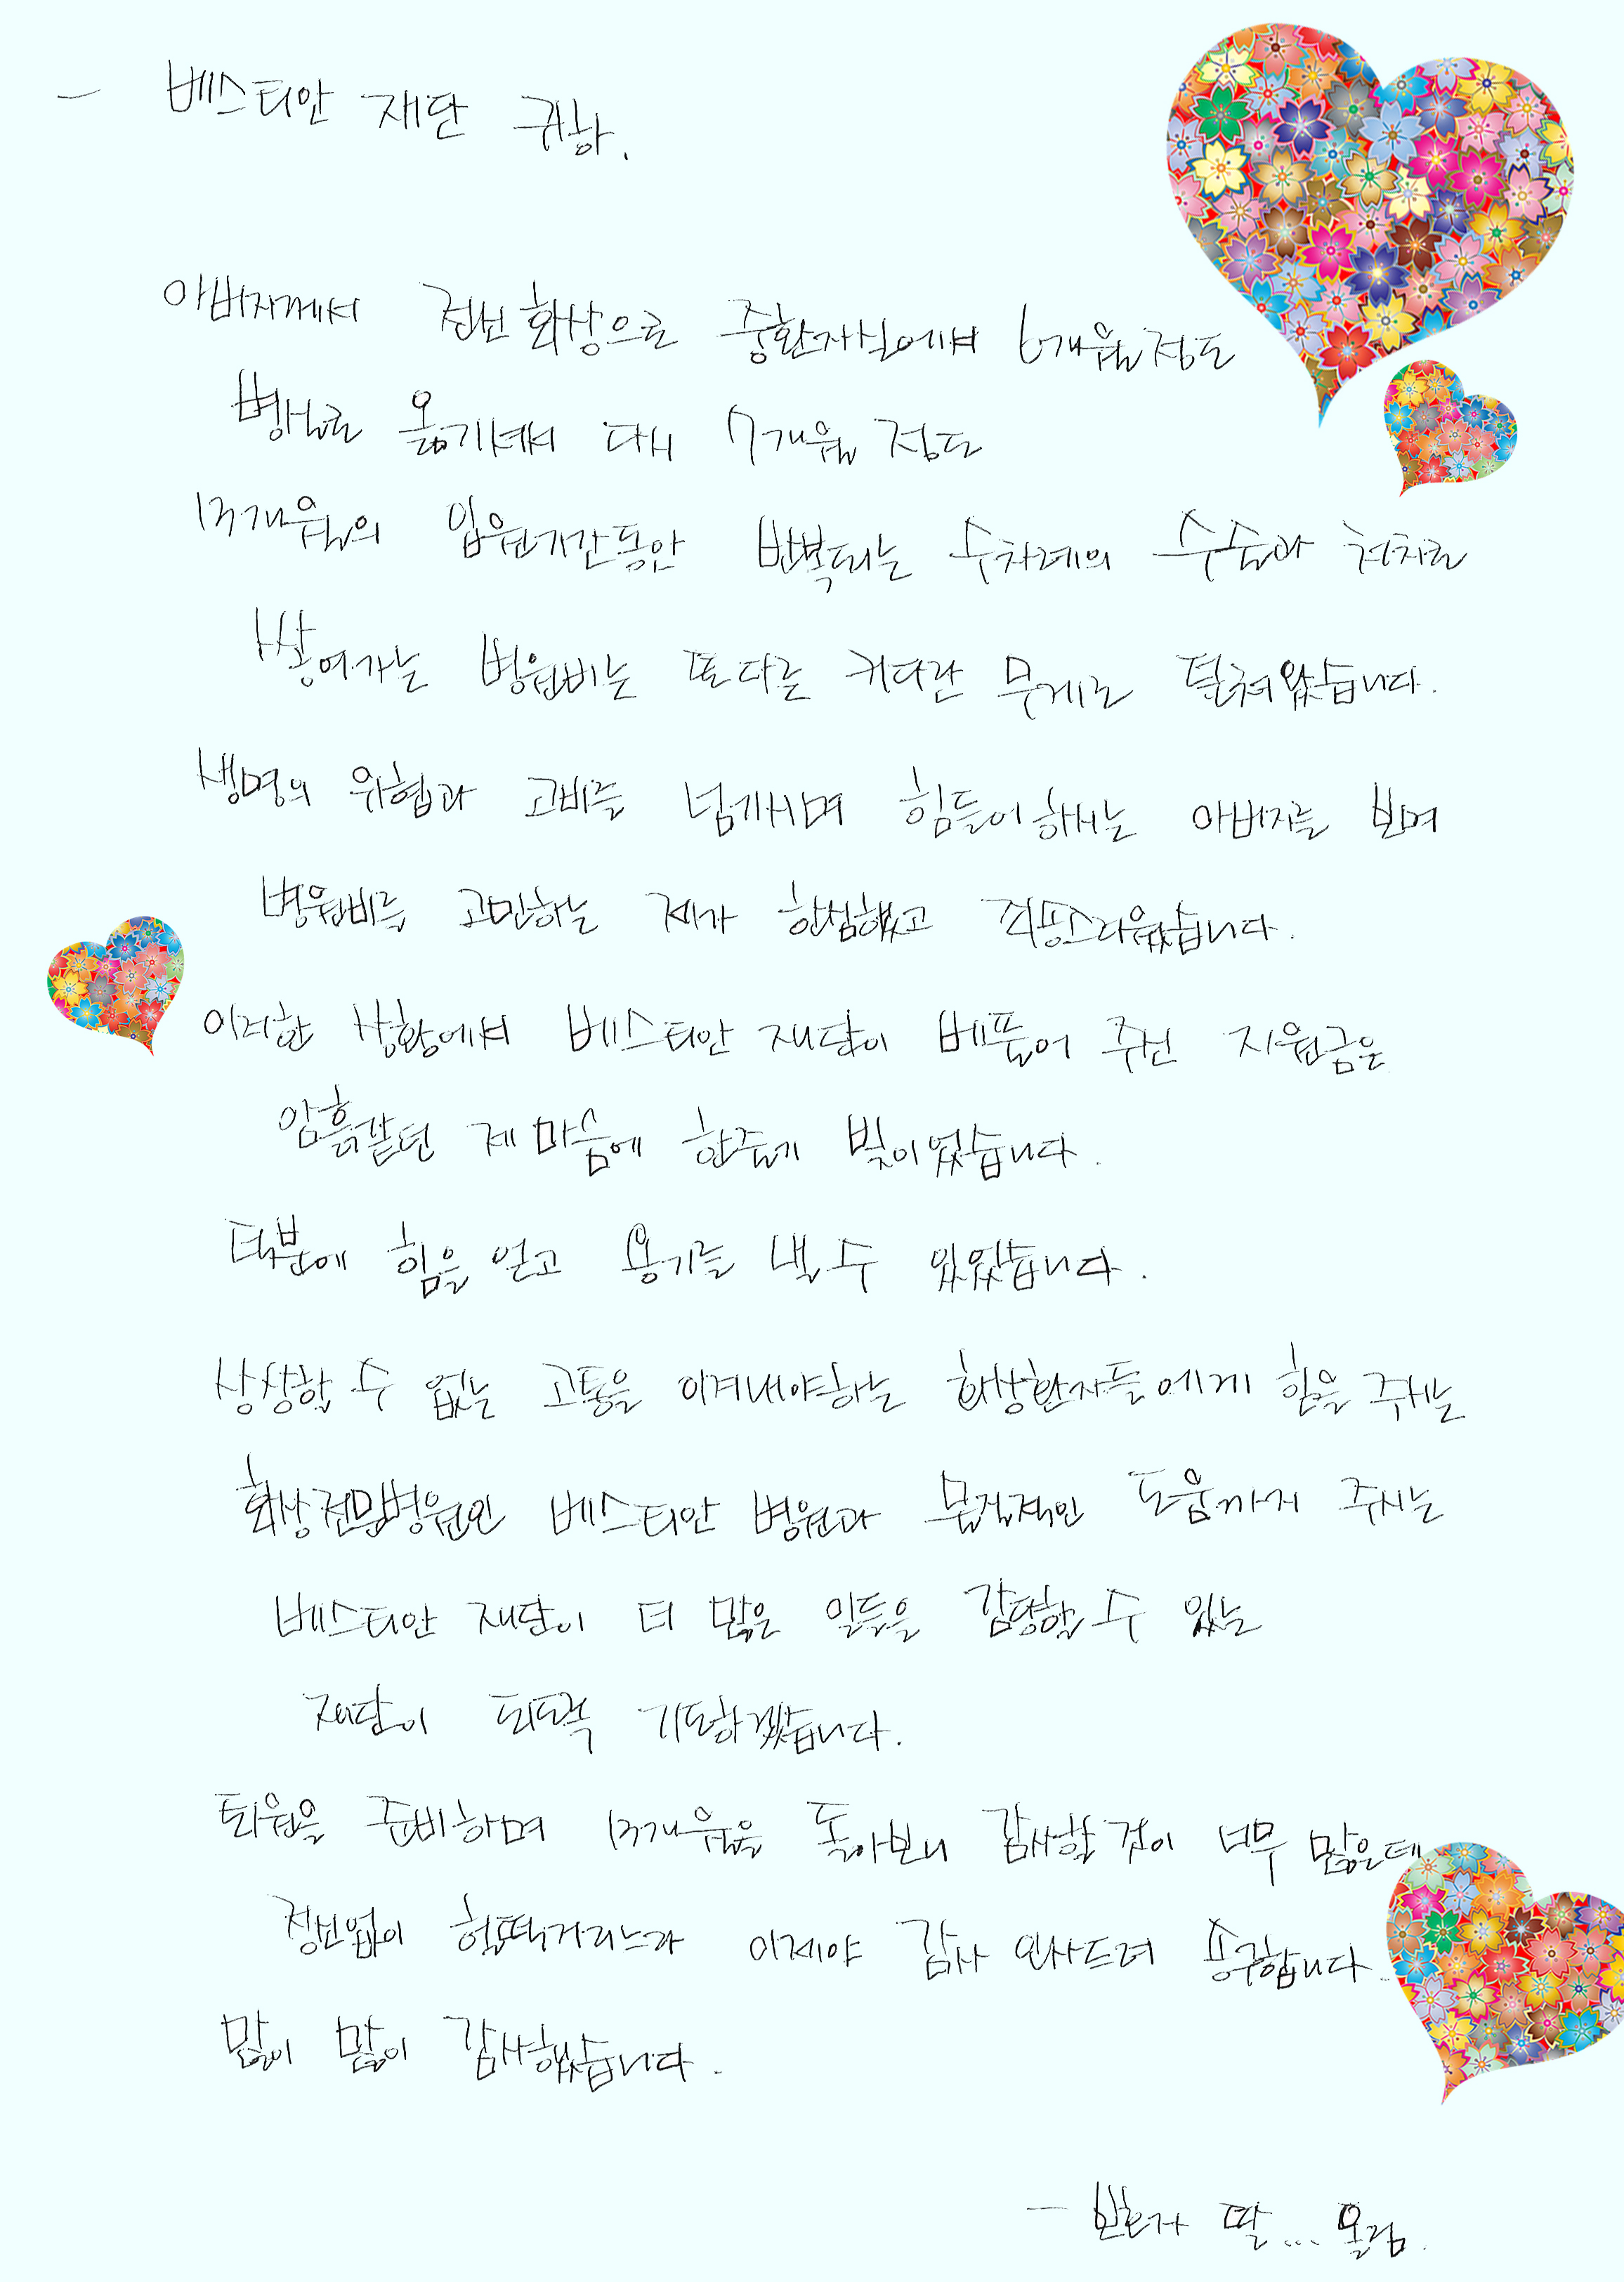 — 베스티안 재단 귀하.
아버지께서 전신화상으로 중환자실에서 6개월정도
병실로 옮기셔서 다시 7개월 정도
13개월의 입원기간동안 반복되는 수차례의 수술과 처치로
쌓여가는 병원비는 또다른 커다란 무게로 덮쳐왔습니다.
생명의 위험과 고비를 넘기시며 힘들어하시는 아버지를 보며
병원비를 고민하는 제가 한심했고 죄송스러웠습니다.
이러한 상황에서 베스티안 재단이 베풀어 주신 지원금은
암흑같던 제 마음에 한줄기 빛이었습니다.
덕분에 힘을 얻고 용기를 낼 수 있었습니다.
상상할 수 없는 고통을 이겨내야하는 화상환자들에게 힘을 주시는
화상전문병원인 베스티안 병원과 물질적인 도움까지 주시는
베스티안 재단이 더 많은 일들을 감당할 수 있는
재단이 되도록 기도하겠습니다.
퇴원을 준비하며 13개월을 돌아보니 감사할 것이 너무 많은데
정신없이 헐떡거리느라 이제야 감사 인사드려 송구합니다.
많이 많이 감사했습니다.
— 보호자 딸... 올림.